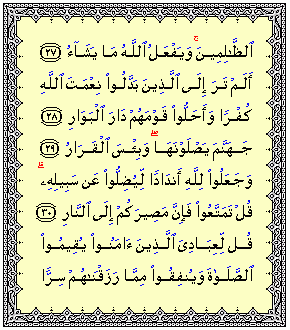 ٱلظَّـٰلِمِينَ ۚ وَيَفْعَلُ ٱللَّهُ مَا يَشَآءُ ﴿٢٧﴾
أَلَمْ تَرَ إِلَى ٱلَّذِينَ بَدَّلُوا۟ نِعْمَتَ ٱللَّهِ
كُفْرًا وَأَحَلُّوا۟ قَوْمَهُمْ دَارَ ٱلْبَوَارِ ﴿٢٨﴾
جَهَنَّمَ يَصْلَوْنَهَا ۖ وَبِئْسَ ٱلْقَرَارُ ﴿٢٩﴾
وَجَعَلُوا۟ لِلَّهِ أَندَادًا لِّيُضِلُّوا۟ عَن سَبِيلِهِۦ ۗ
قُلْ تَمَتَّعُوا۟ فَإِنَّ مَصِيرَكُمْ إِلَى ٱلنَّارِ ﴿٣٠﴾
قُل لِّعِبَادِىَ ٱلَّذِينَ ءَامَنُوا۟ يُقِيمُوا۟
ٱلصَّلَوٰةَ وَيُنفِقُوا۟ مِمَّا رَزَقْنَـٰهُمْ سِرًّا